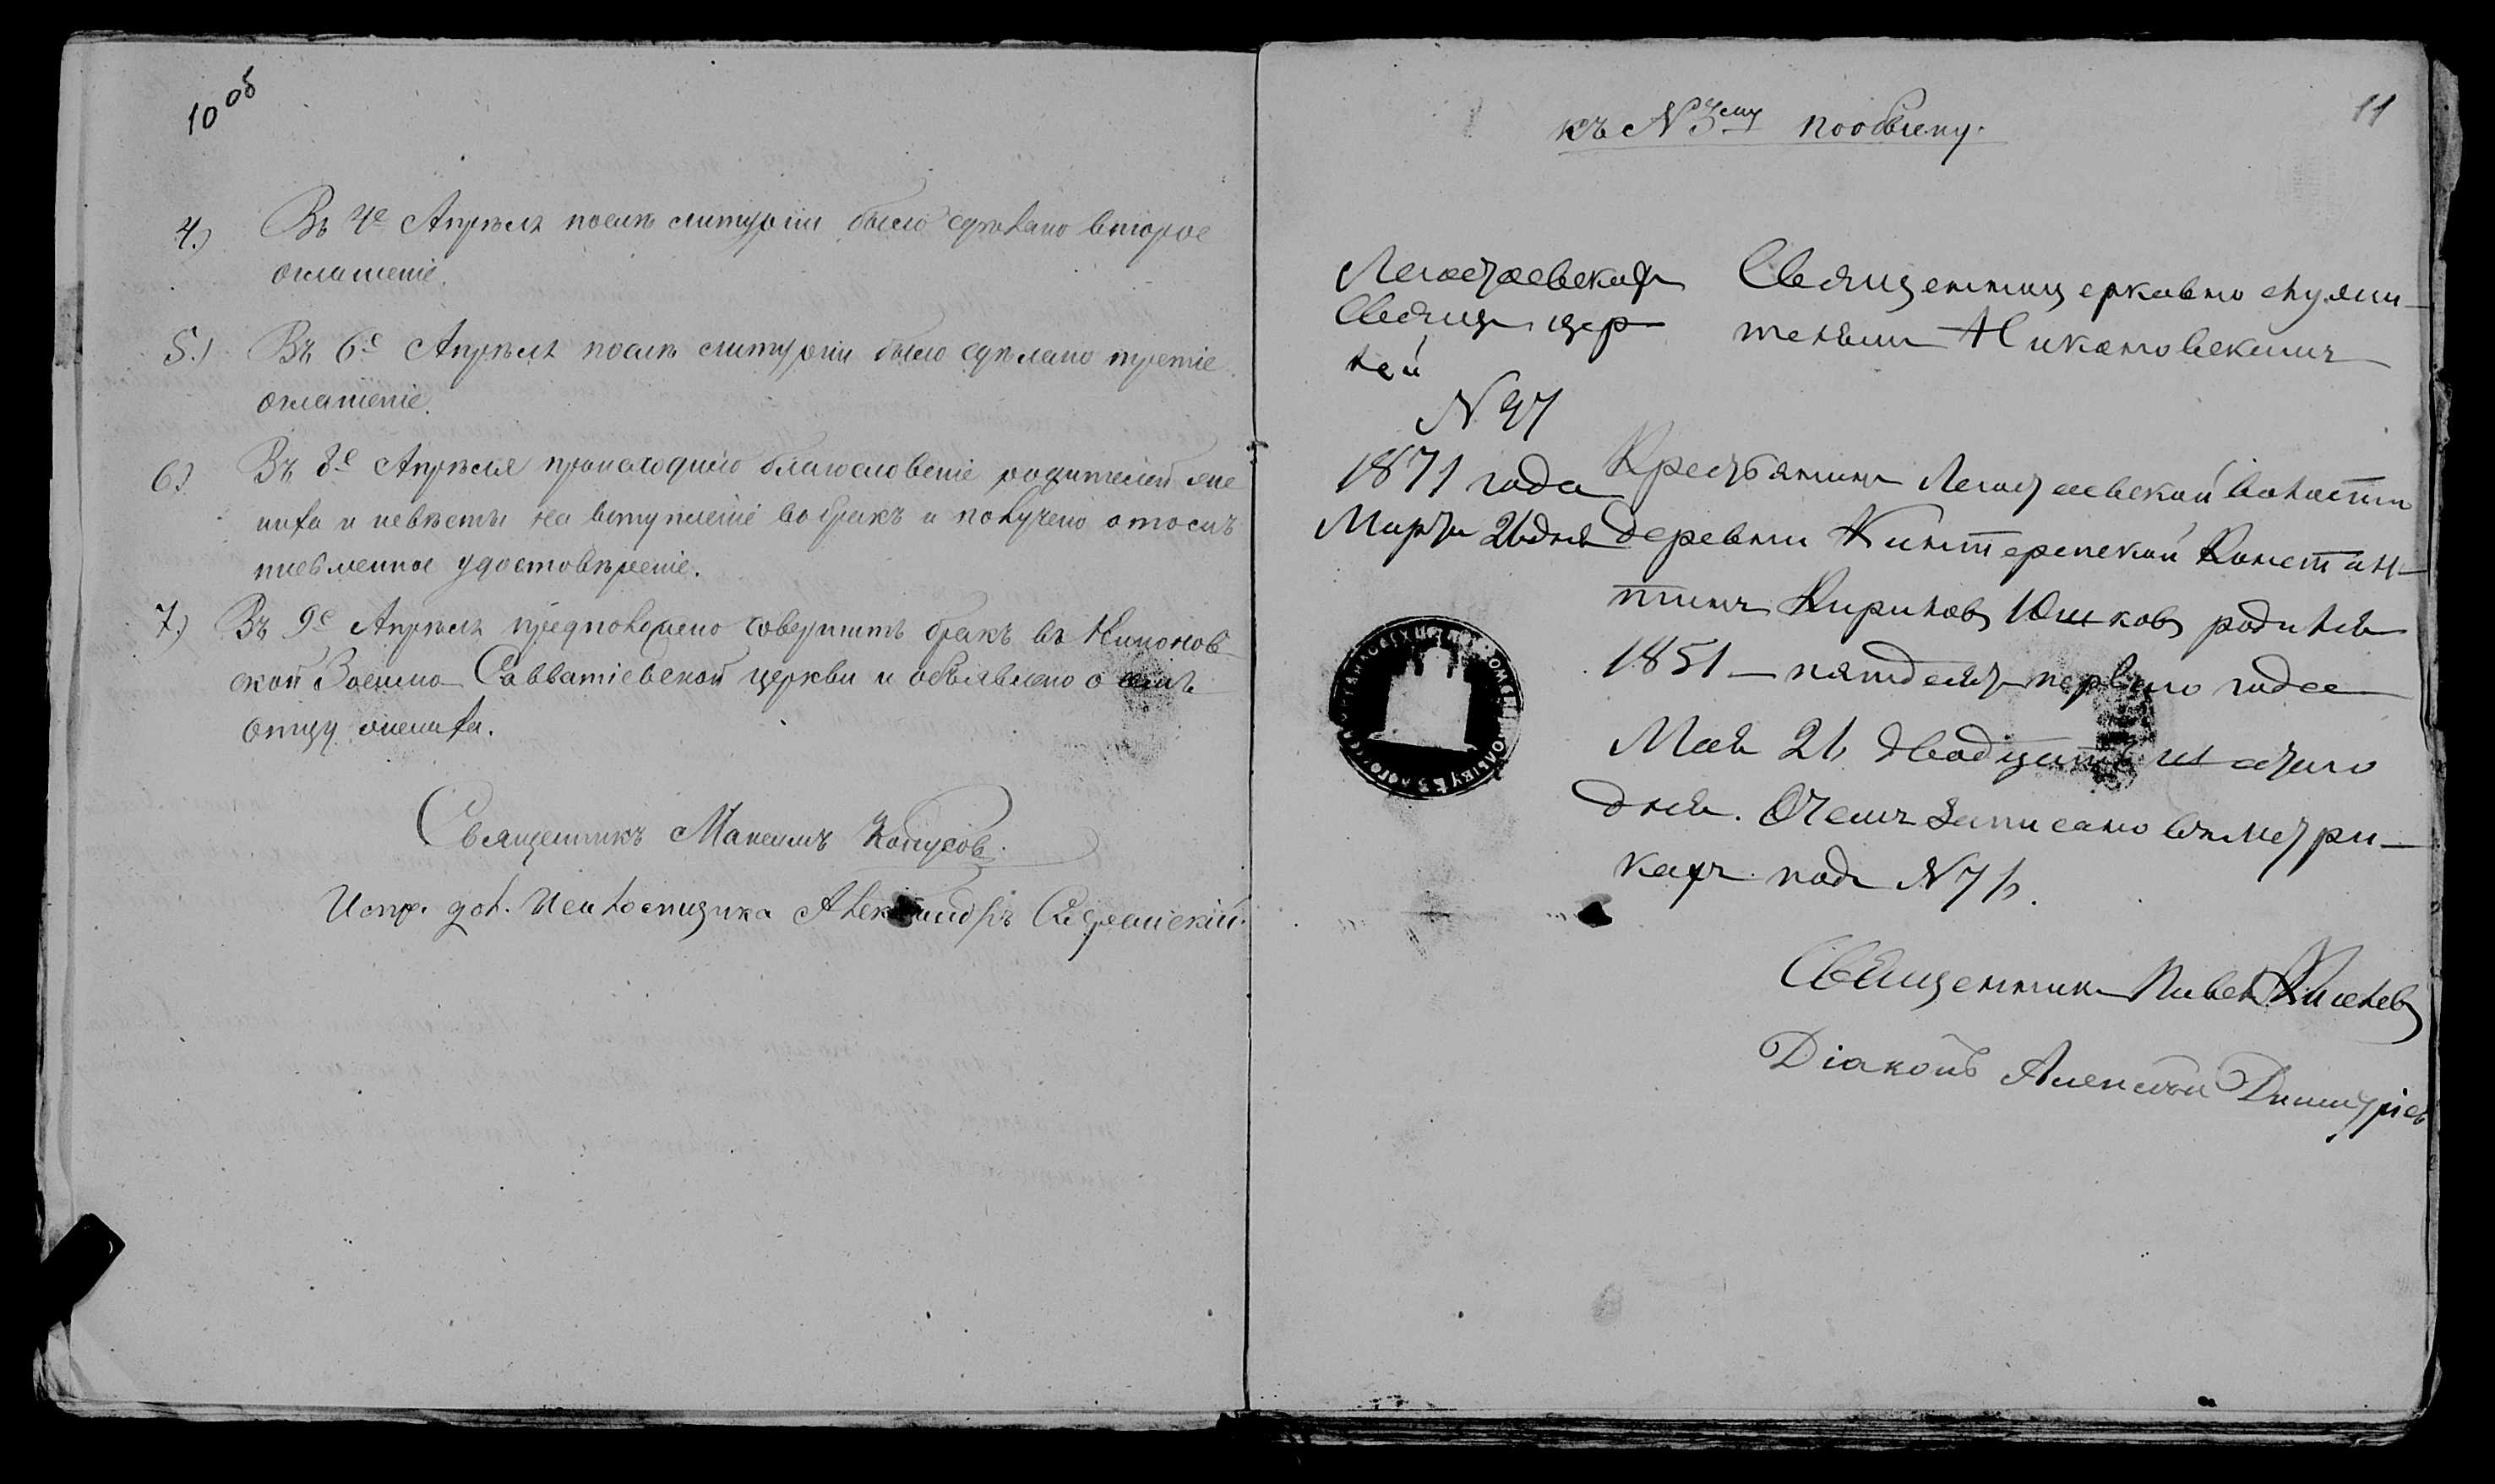 10 об
4.) Въ 4е Апрѣля послѣ литургіи было сдѣлано второе
оглашеніе.
5.) Въ 6е Апрѣля послѣ литургіи было сдѣлано третіе
оглашеніе.
6) Въ 8е Апрѣля происходило благословеніе родителей же
ниха и невѣсты на вступленіе въ бракъ и получено о томъ
письменное удостовѣреніе.
7.) Въ 9е Апрѣля предположено совершить бракъ въ
ской Зосимо Савватіевской церкви и объявлено о семъ
отцу жениха.
Священникъ Максимъ
Испр. дол. Псаломщика Александръ
11
къ N 3ему по обыску.
Легостаевской
Свящ. цер
кви
N 97
1871 года
Марта 26 дня
Священно церковно служи-
телямъ
Крестьянинъ Легостаевской волости
деревни Констан-
тинъ Кириловъ Юшковъ родился
1851 — пятдесятъ перваго года
Мая 21 двадцать
дня. О чемъ записано въ метри-
кахъ подъ N
Священникъ Павелъ Киселевъ
Діаконъ Алексѣй Димитріев